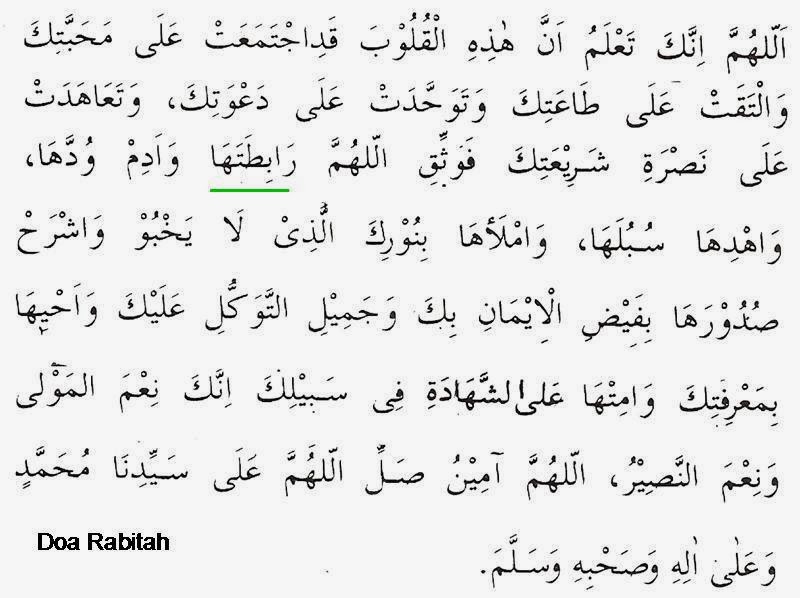 اَللّٰهُمَّ اِنَّكَ تَعْلَمُ اَنَّ هٰذِهِ الْقُلُوْبَ قَدِاجْتَمَعَتْ عَلَى مَحَبَّتِكَ
وَالْتَقَتْ عَلَى طَاعَتِكَ وَتَوَحَّدَتْ عَلَى دَعْوَتِكَ، وَتَعَاهَدَتْ
عَلَى نَصْرَةِ شَرِيْعَتِكَ فَوَثِّقِ اللّٰهُمَّ رَابِطَتَهَا وَاَدِمْ وُدَّهَا،
وَاهْدِهَا سُبُلَهَا، وَامْلَأْهَا بِنُوْرِكَ الَّذِىْ لَا يَخْبُوْ وَاشْرَحْ
صُدُوْرَهَا بِفَيْضِ الْاِيْمَانِ بِكَ وَجَمِيْلِ التَّوَكُّلِ عَلَيْكَ وَاَحْيِهَا
بِمَعْرِفَتِكَ وَامِتْهَا عَلَى الشَّهَادَةِ فِى سَبِيْلِكَ اِنَّكَ نِعْمَ المَوْلٰى
وَنِعْمَ النَّصِيْرُ، اللّٰهُمَّ آمِيْنُ صَلِّ اللّٰهُمَّ عَلَى سَيِّدِنَا مُحَمَّدٍ
وَعَلٰى اٰلِهِ وَصَحْبِهِ وَسَلَّمَ.
Doa Rabitah